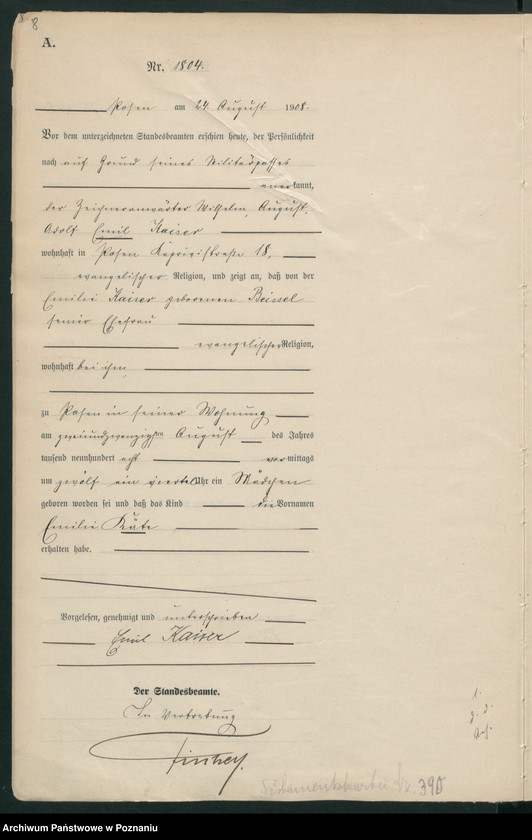 8
A.
Nr. 1804.
Posen am 24 August 1908.
Vor dem unterzeichneten Standesbeamten erschien heute, der Persönlichkeit
nach auf Grund seines Militärpasses
anerkannt,
der Zeichneranwärter Wilhelm, August,
Adolf Emil Kaiser
wohnhaft in Posen Kaprivistraße 18,
evangelischer Religion, und zeigt an, daß von der
Emilie Kaiser geborenen Beissel
seiner Ehefrau
evangelischer Religion,
wohnhaft bei ihm,
zu Posen in seiner Wohnung
am zweiundzwanzigsten August des Jahres
tausend neunhundert acht vormittags
um zwölf ein viertel Uhr ein Mädchen
geboren worden sei und daß das Kind die Vornamen
Emilie Käte
erhalten habe.
Vorgelesen, genehmigt und unterschrieben
Emil Kaiser
Der Standesbeamte.
In Vertretung
390
Archiwum Państwowe w Poznaniu